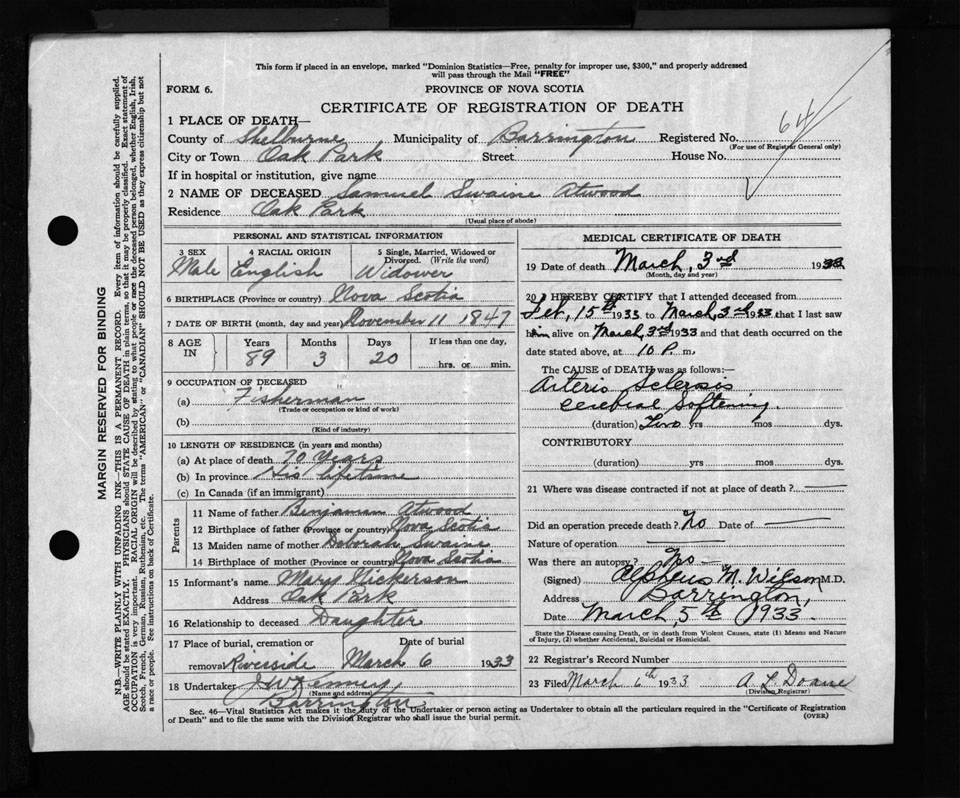 This form if placed in an envelope, marked "Dominion Statistics—Free, penalty for improper use, $300," and properly addressed
will pass through the Mail "FREE"
FORM 6.
PROVINCE OF NOVA SCOTIA
CERTIFICATE OF REGISTRATION OF DEATH
64
1 PLACE OF DEATH—
County of Shelburne Municipality of Barrington Registered No.
(For use of Registrar General only)
City or Town Oak Park Street House No.
If in hospital or institution, give name
2 NAME OF DECEASED Samuel Swaine Atwood
Residence Oak Park
(Usual place of abode)
PERSONAL AND STATISTICAL INFORMATION
3 SEX 4 RACIAL ORIGIN 5 Single, Married, Widowed or
Divorced. (Write the word)
Male English Widower
6 BIRTHPLACE (Province or country) Nova Scotia
7 DATE OF BIRTH (month, day and year) November 11 1847
8 AGE IN Years Months Days If less than one day,
89 3 20 hrs. or min.
9 OCCUPATION OF DECEASED
(a) Fisherman
(Trade or occupation or kind of work)
(b)
(Kind of industry)
10 LENGTH OF RESIDENCE (in years and months)
(a) At place of death 70 Years
(b) In province His lifetime
(c) In Canada (if an immigrant)
Parents
11 Name of father Benjaman Atwood
12 Birthplace of father (Province or country) Nova Scotia
13 Maiden name of mother Deborah Swaine
14 Birthplace of mother (Province or country) Nova Scotia
15 Informant's name Mary Nickerson
Address Oak Park
16 Relationship to deceased Daughter
17 Place of burial, cremation or Date of burial
removal Riverside March 6 1933
18 Undertaker J W Kenney
(Name and address)
Barrington
MEDICAL CERTIFICATE OF DEATH
19 Date of death March, 3rd 1933
(Month, day and year)
20 I HEREBY CERTIFY that I attended deceased from
Feb, 15th 1933 to March, 3rd 1933 that I last saw
him alive on March, 3rd 1933 and that death occurred on the
date stated above, at 10 P. m.
The CAUSE of DEATH was as follows:—
Arterio Sclerosis
Cerebral Softening.
(duration) Two yrs mos dys.
CONTRIBUTORY
(duration) yrs mos dys.
21 Where was disease contracted if not at place of death?
Did an operation precede death? No Date of
Nature of operation
Was there an autopsy? No
(Signed) Alpheus M. Wilson M.D.
Address Barrington,
Date March, 5th 1933.
State the Disease causing Death, or in death from Violent Causes, state (1) Means and Nature
of Injury, (2) whether Accidental, Suicidal or Homicidal.
22 Registrar's Record Number
23 Filed March 6th 1933 A L Doane
(Division Registrar)
Sec. 46—Vital Statistics Act makes it the duty of the Undertaker or person acting as Undertaker to obtain all the particulars required in the "Certificate of Registration
of Death" and to file the same with the Division Registrar who shall issue the burial permit.
(OVER)
MARGIN RESERVED FOR BINDING
N.B.—WRITE PLAINLY WITH UNFADING INK—THIS IS A PERMANENT RECORD. Every item of information should be carefully supplied.
AGE should be stated EXACTLY. PHYSICIANS should STATE CAUSE OF DEATH in plain terms, so that it may be properly classified. Exact statement of
OCCUPATION is very important. RACIAL ORIGIN will be described by stating to what people or race the deceased person belonged, whether English, Irish,
Scotch, French, German, Russian, Ruthenian, etc. The terms "AMERICAN" or "CANADIAN" SHOULD NOT BE USED as they express citizenship but not
a race or people. See instructions on back of Certificate.